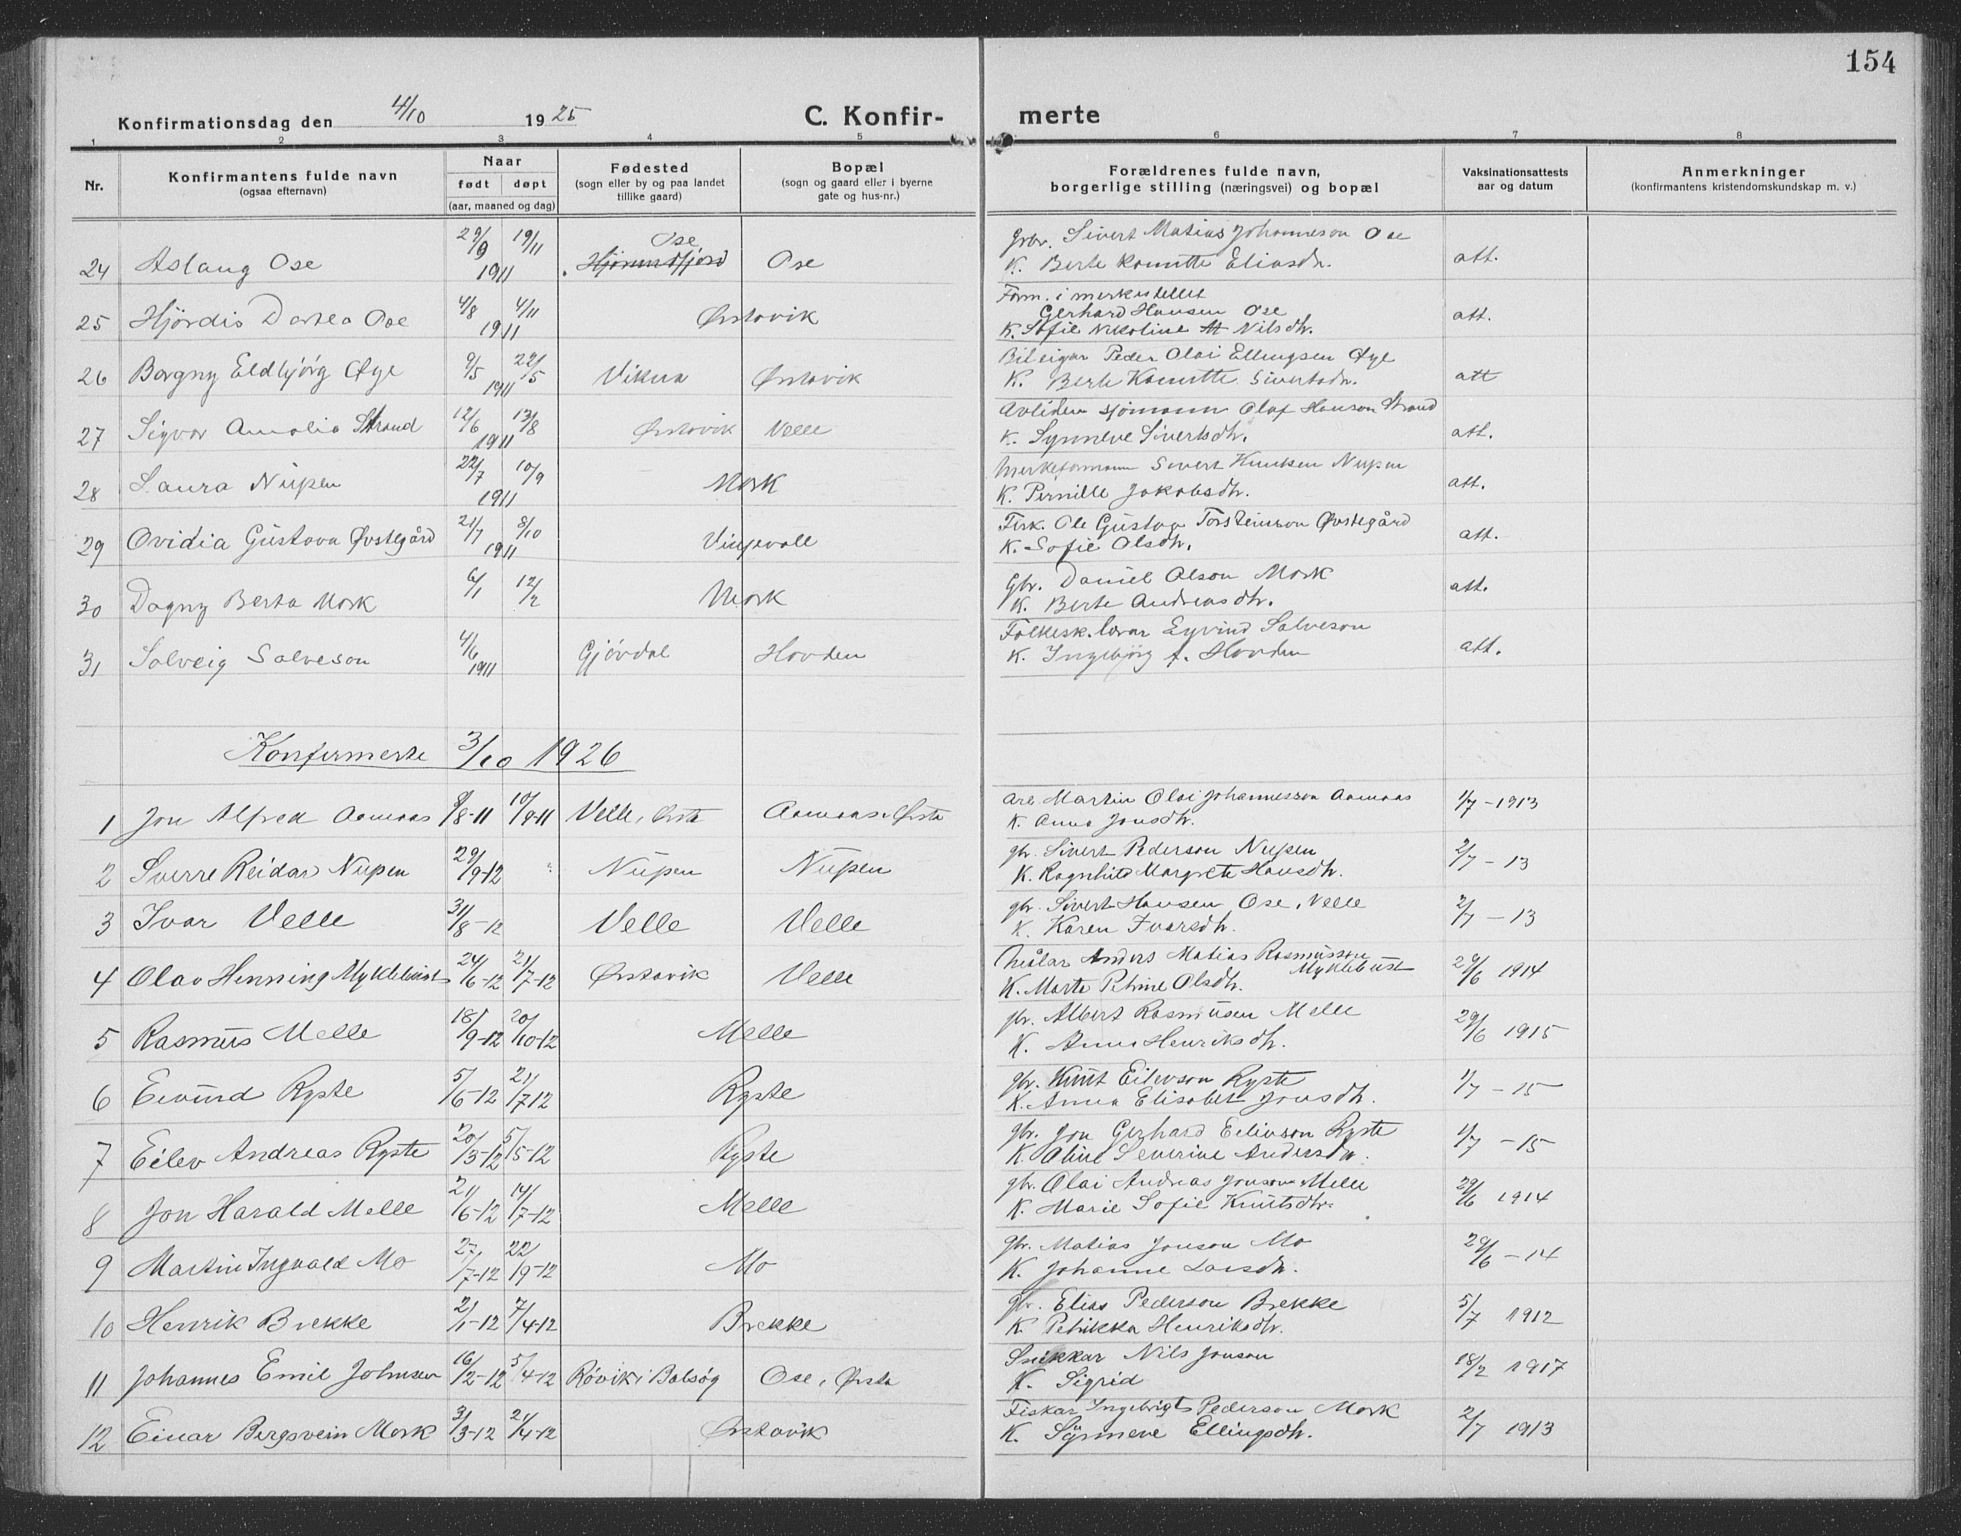 154
Konfirmationsdag den 4/10 1925 C. Konfirmerte
1 2 3 4 5 6 7 8
Nr. Konfirmantens fulde navn (ogsaa efternavn) Naar født døpt (aar, maaned og dag) Fødested (sogn eller by og paa landet tillike gaard) Bopæl (sogn og gaard eller i byerne gate og hus-nr.) Forældrenes fulde navn, borgerlige stilling (næringsvei) og bopæl Vaksinationsattests aar og datum Anmerkninger (konfirmantens kristendomskundskap m. v.)
24 Aslaug Ose 29/9 1911 19/11 Ose Hjørundfjord Ose Gbr. Sivert Matias Johanneson Ose
K. Berte Eliasdr. att.
25 Hjördis Dortea Ose 4/8 1911 4/11 Ørstavik Form. i merkistellet
Gerhard Hansen Ose
K. Sofie Nikoline Nilsdtr. att.
26 Borgny Eldbjörg Øye 9/5 1911 22/5 Vikna Ørstavik Bileigar Peder Olai Ellingsen Øye
K. Berte Sivertsdr. att
27 Sigvor Amalia Strand 12/6 1911 13/8 Ørstavik Velle Avliden sjömann Olaf Hanson Strand
K. Synneve Sivertsdtr. att.
28 Laura Nupen 22/7 1911 10/9 Mork Merkeformann Sivert Knutsen Nupen
K. Pernille Jakobsdtr. att.
29 Ovidia Gustava Øvstegård 21/7 1911 8/10 Fisk. Ole Gustav Torsteinson Øvstegård
K. Sofie Olsdtr. att.
30 Dagny Berta Mork 6/1 12/2 Mork Gbr. Daniel Olson Mork
K. Berte Andreasdtr. att.
31 Solveig Salveson 4/6 1911 Gjövdal Hovden Folkesk. lærar Eyvind Salveson
K. Ingebjörg f. Hovden att.
Konfirmerte 3/10 1926
1 Jon Alfred Aamaas 9/8-11 10/9-11 Velle, Ørsta Aamaas, Ørsta arb. Martin Olai Johannesson Aamaas
K. Anna Jonsdtr. 1/7-1913
2 Sverre Reidar Nupen 29/9-12 Nupen Nupen gbr. Sivert Pederson Nupen
K. Ragnhild Margrete Hansdtr. 2/7-13
3 Ivar Velle 31/8-12 Velle Velle gbr. Sivert Hansen Ose, Velle
K. Karen Ivarsdtr. 2/7-13
4 Olav Henning Myklebust 24/6-12 21/7-12 Ørstavik Velle Målar Anders Matias Rasmusson Myklebust
K. Marte Petrine Olsdtr. 29/6 1914
5 Rasmus Melle 18/9-12 20/10-12 Melle gbr. Albert Rasmusen Melle
K. Anna Henriksdtr. 29/6 1915
6 Eivind Ryste 5/6-12 21/7 12 Ryste gbr. Knut Eilevson Ryste
K. Anna Elisabet Jonsdtr. 1/7-15
7 Eilev Andreas Ryste 20/3-12 5/5-12 Ryste gbr. Jon Gerhard Eilevson Ryste
K. Oline Severine Andersdtr. 1/7-15
8 Jon Harald Melle 21/6-12 14/7-12 Melle gbr. Olai Andreas Jonson Melle
K. Marie Sofie Knutsdtr. 29/6 1914
9 Martin Ingvald Mo 27/7-12 22/9-12 Mo gbr. Matias Jonson Mo
K. Johanne Larsdtr. 29/6-14
10 Henrik Brekke 2/1-12 7/4-12 Brekke gbr. Elias Pederson Brekke
K. Petrikka Henriksdtr. 5/7 1912
11 Johannes Emil Johnsen 16/2-12 5/4-12 Rövik i Bolsög Ose, Ørsta Snikkar Nils Jonson
K. Sigrid 18/2 1917
12 Einar Bergsvein Mork 3/3-12 21/4-12 Ørstavik Fiskar Ingebrigt Pederson Mork
K. Synneve Ellingsdtr. 2/7 1913